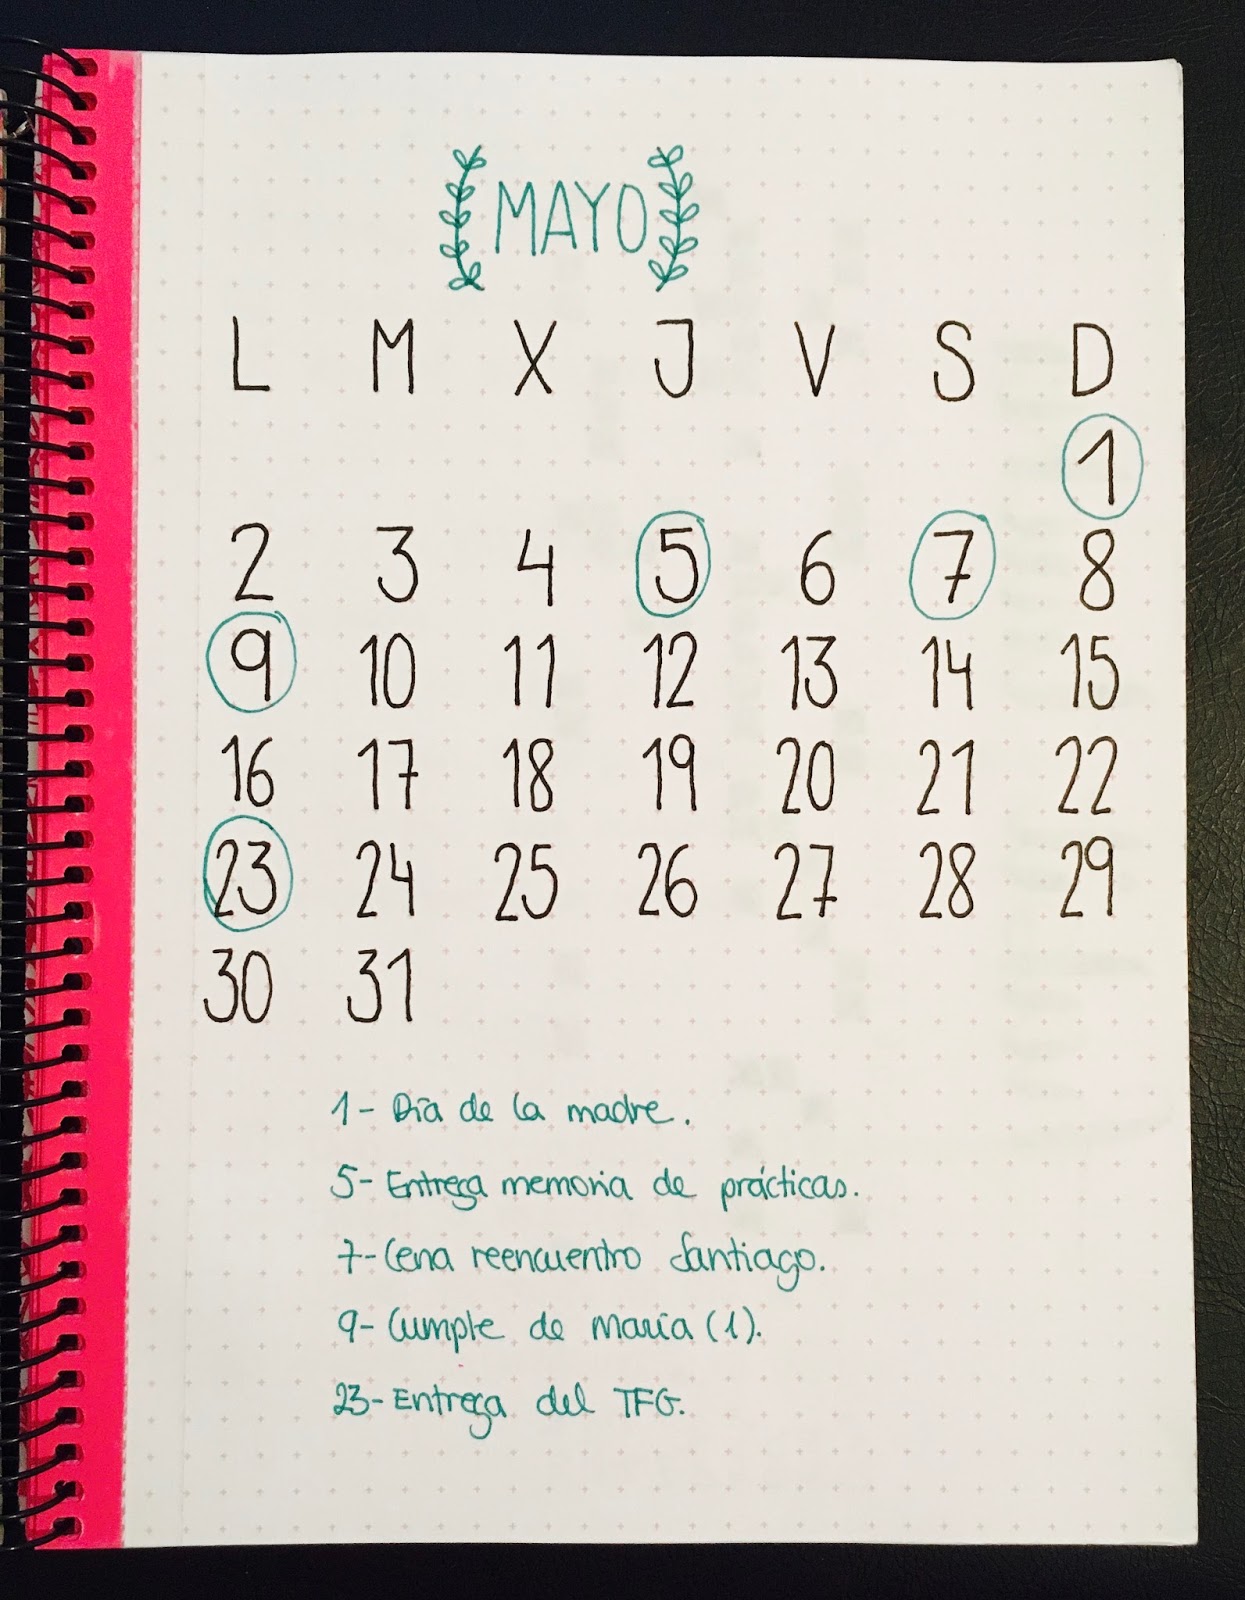 MAYO
L M X J V S D
1
2 3 4 5 6 7 8
9 10 11 12 13 14 15
16 17 18 19 20 21 22
23 24 25 26 27 28 29
30 31
1- Día de la madre.
5- Entrega memoria de prácticas.
7- Cena reencuentro Santiago.
9- Cumple de María (1).
23- Entrega del TFG.